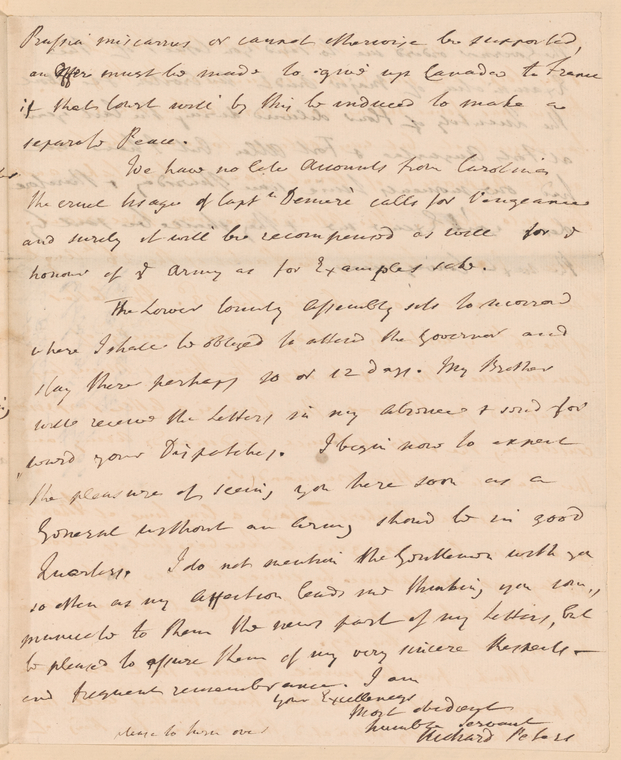 Prussia miscarries or cannot otherwise be supported,
an offer must be made to give up Canada to France
if that Court will by this be induced to make a
separate Peace.
We have no late Accounts from Carolina
the cruel Usage of Capt Demeré calls for Vengeance
and surely it will be recompensed as well for ye
honour of ye Army as for Examples sake.
The Lower County Assembly sits to morrow
where I shall be obliged to attend the Governor and
stay there perhaps 10 or 12 days. My Brother
will receive the Letters in my absence & send for
ward your Dispatches. I begin now to expect
the pleasure of seeing you here soon as a
General without an Army should be in good
Quarters. I do not mention the Gentlemen with you
so often as my affection leads me thinking you com,,
municate to them the news part of my Letters, but
be pleased to assure them of my very sincere Respects
and frequent remembrance. I am
your Excellencys
Most obedient
humble Servant
Richard Peters
please to turn over